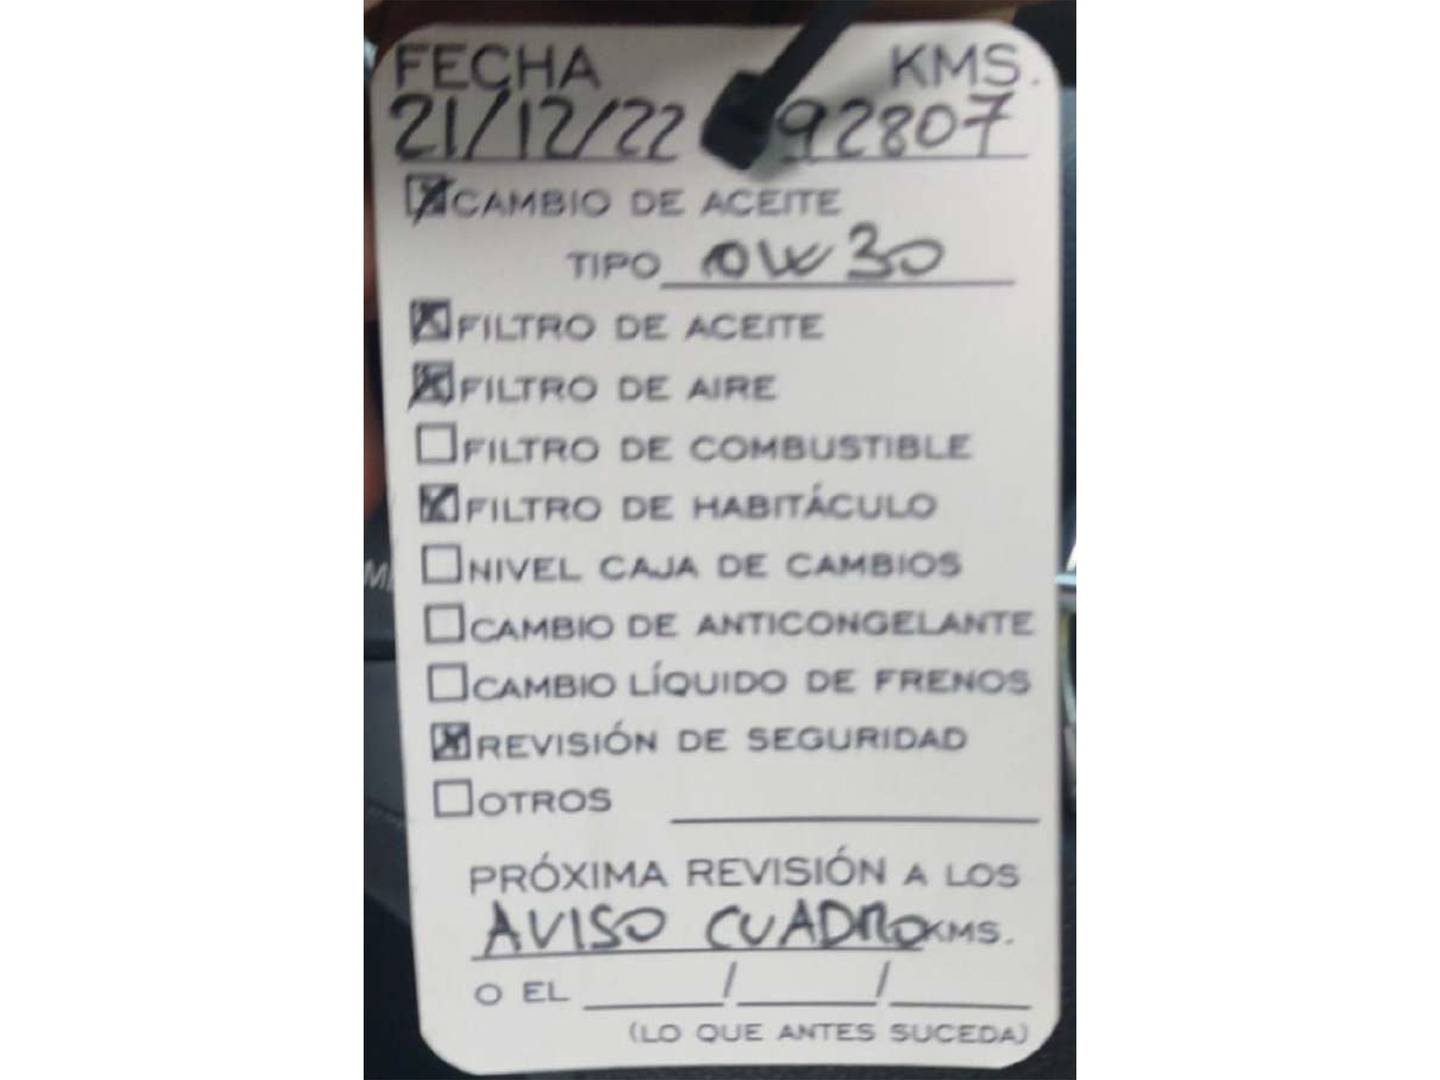 FECHA KMS.
21/12/22 92807
CAMBIO DE ACEITE
TIPO 0W30
FILTRO DE ACEITE
FILTRO DE AIRE
FILTRO DE COMBUSTIBLE
FILTRO DE HABITÁCULO
NIVEL CAJA DE CAMBIOS
CAMBIO DE ANTICONGELANTE
CAMBIO LÍQUIDO DE FRENOS
REVISIÓN DE SEGURIDAD
OTROS
PRÓXIMA REVISIÓN A LOS
AVISO CUADRO KMS.
O EL / /
(LO QUE ANTES SUCEDA)